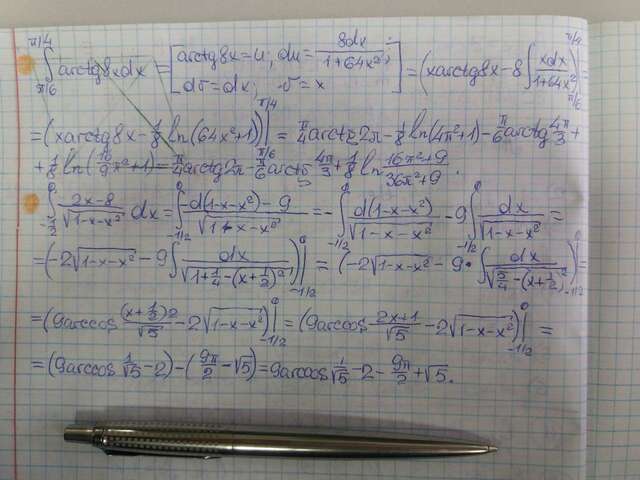 ∫_{π/6}^{π/4} arctg8xdx = [arctg8x=u; du=8dx/(1+64x²); dv=dx; v=x] = (xarctg8x-8∫xdx/(1+64x²))|_{π/6}^{π/4}=
=(xarctg8x-1/8 ln(64x²+1))|_{π/6}^{π/4} = π/4 arctg2π-1/8 ln(4π²+1)-π/6 arctg 4π/3+
+1/8 ln(16/9 π²+1)=π/4 arctg2π-π/6 arctg 4π/3+1/8 ln (16π²+9)/(36π²+9).
∫_{-1/2}^{0} (2x-8)/√(1-x-x²) dx = ∫_{-1/2}^{0} (-d(1-x-x²)-9)/√(1-x-x²) = -∫_{-1/2}^{0} d(1-x-x²)/√(1-x-x²) -9∫_{-1/2}^{0} dx/√(1-x-x²) =
=(-2√(1-x-x²)-9∫dx/√(1+1/4-(x+1/2)²))|_{-1/2}^{0} = (-2√(1-x-x²)-9·∫dx/√(5/4-(x+1/2)²))|_{-1/2}^{0}=
=(9arccos (x+1/2)2/√5 -2√(1-x-x²))|_{-1/2}^{0}=(9arccos (2x+1)/√5 -2√(1-x-x²))|_{-1/2}^{0}=
=(9arccos 1/√5 -2)-(9π/2-√5)=9arccos 1/√5-2-9π/2+√5.